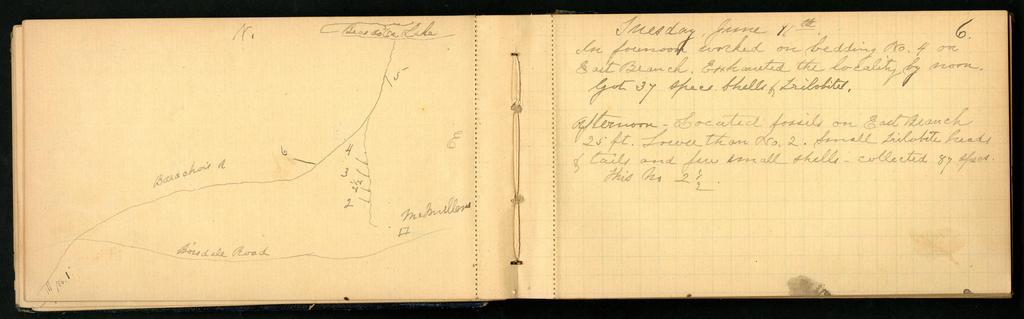 N.
Lake
5
6
4
3
2½
2
Barachois R
E
McMullens
Boisdale Road
No. 1.
6.
Tuesday June 11th
In forenoon worked on bedding No. 4 on
East Branch. Exhausted the locality by noon.
Got 37 specs. Shells & Trilobites.
Afternoon - Located fossils on East Branch
25 ft. Lower than No. 2. Small Trilobite heads
& tails and few small shells - collected 87 specs.
This No 2½.